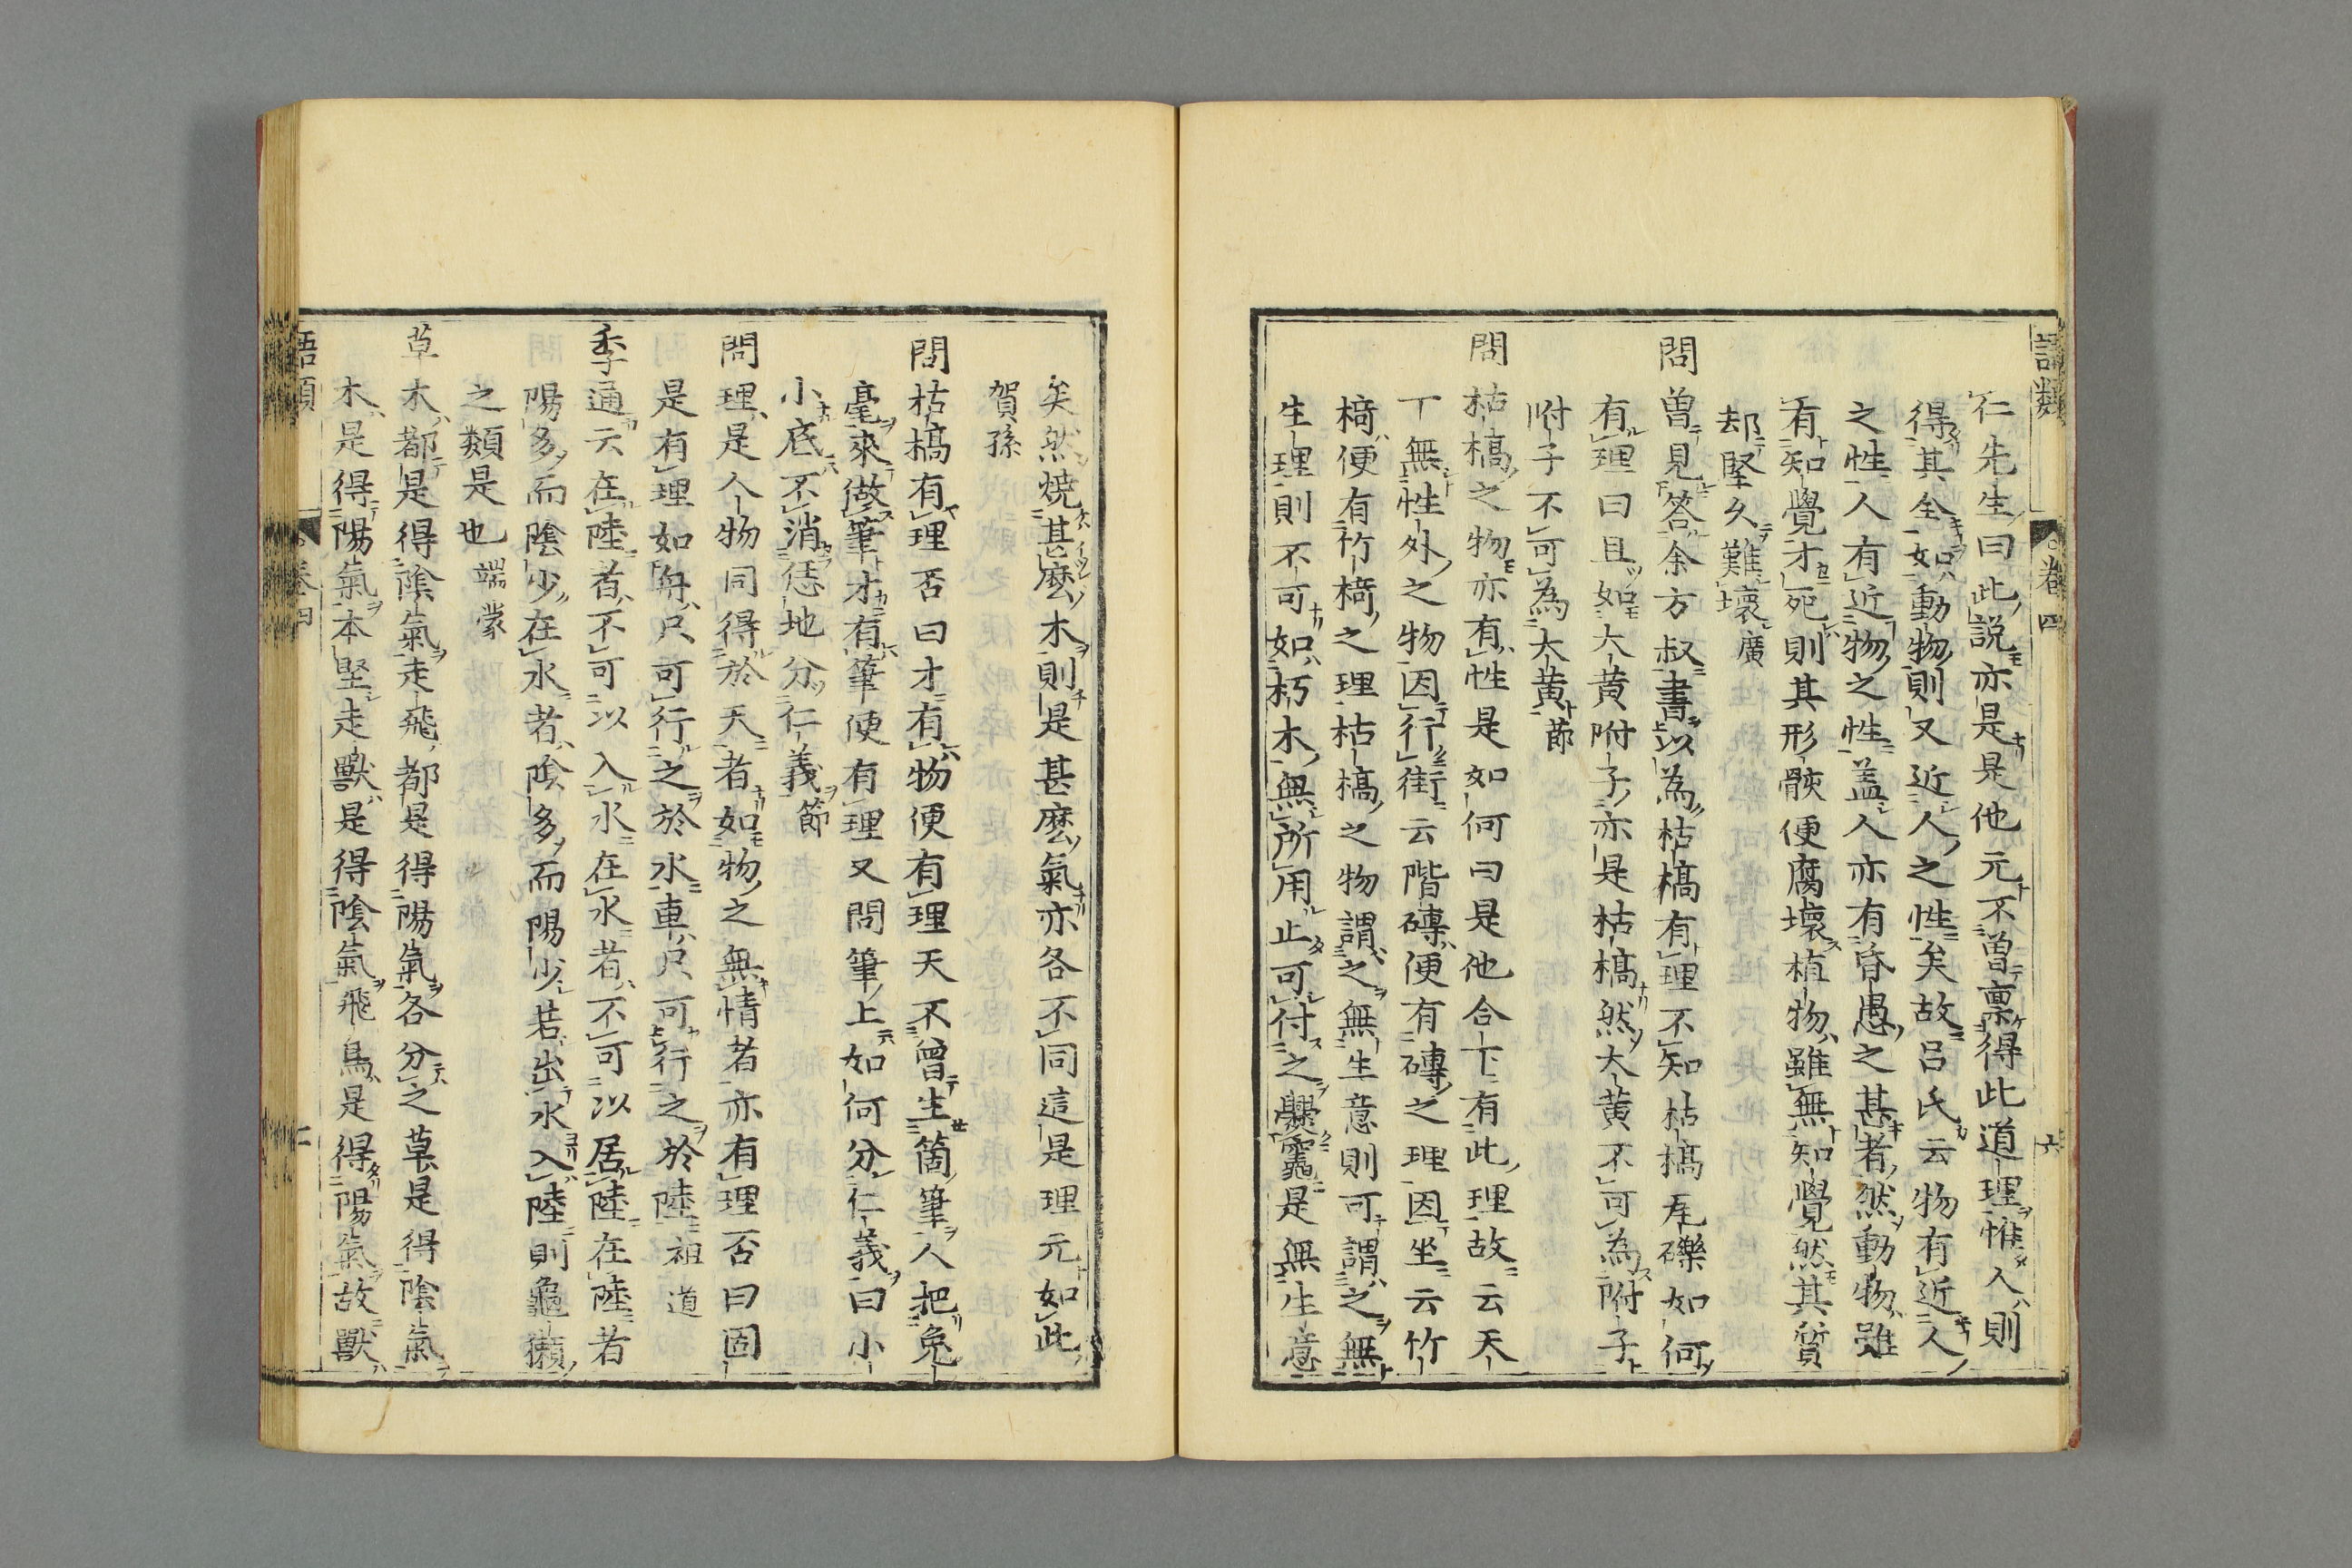 語類
卷四
六
仁先生曰此說亦是是他元不曾稟得此道理惟人則
得其全如動物則又近人之性矣故呂氏云物有近人
之性人有近物之性盖人亦有昏愚之甚者然動物雖
有知覺才死則其形骸便腐壞植物雖無知覺然其質
却堅久難壞廣
問曾見答余方叔書以為枯槁有理不知枯槁瓦礫如何
有理曰且如大黄附子亦是枯槁然大黄不可為附子
附子不可為大黄節
問枯槁之物亦有性是如何曰是他合下有此理故云天
下無性外之物因行街云階磚便有磚之理因坐云竹
椅便有竹椅之理枯槁之物謂之無生意則可謂之無
生理則不可如朽木無所用止可付之爨竈是無生意
矣然燒甚麼木則是甚麼氣亦各不同這是理元如此
賀孫
問枯槁有理否曰才有物便有理天不曾生箇筆人把兔
毫來做筆才有筆便有理又問筆上如何分仁義曰小
小底不消恁地分仁義節
問理是人物同得於天者如物之無情者亦有理否曰固
是有理如舟只可行之於水車只可行之於陸祖道
季通云在陸者不可以入水在水者不可以居陸在陸者
陽多而陰少在水者陰多而陽少若出水入陸則龜獺
之類是也端蒙
草木都是得陰氣走飛都是得陽氣各分之草是得陰氣
木是得陽氣本堅走獸是得陰氣飛鳥是得陽氣故獸
語類
卷四